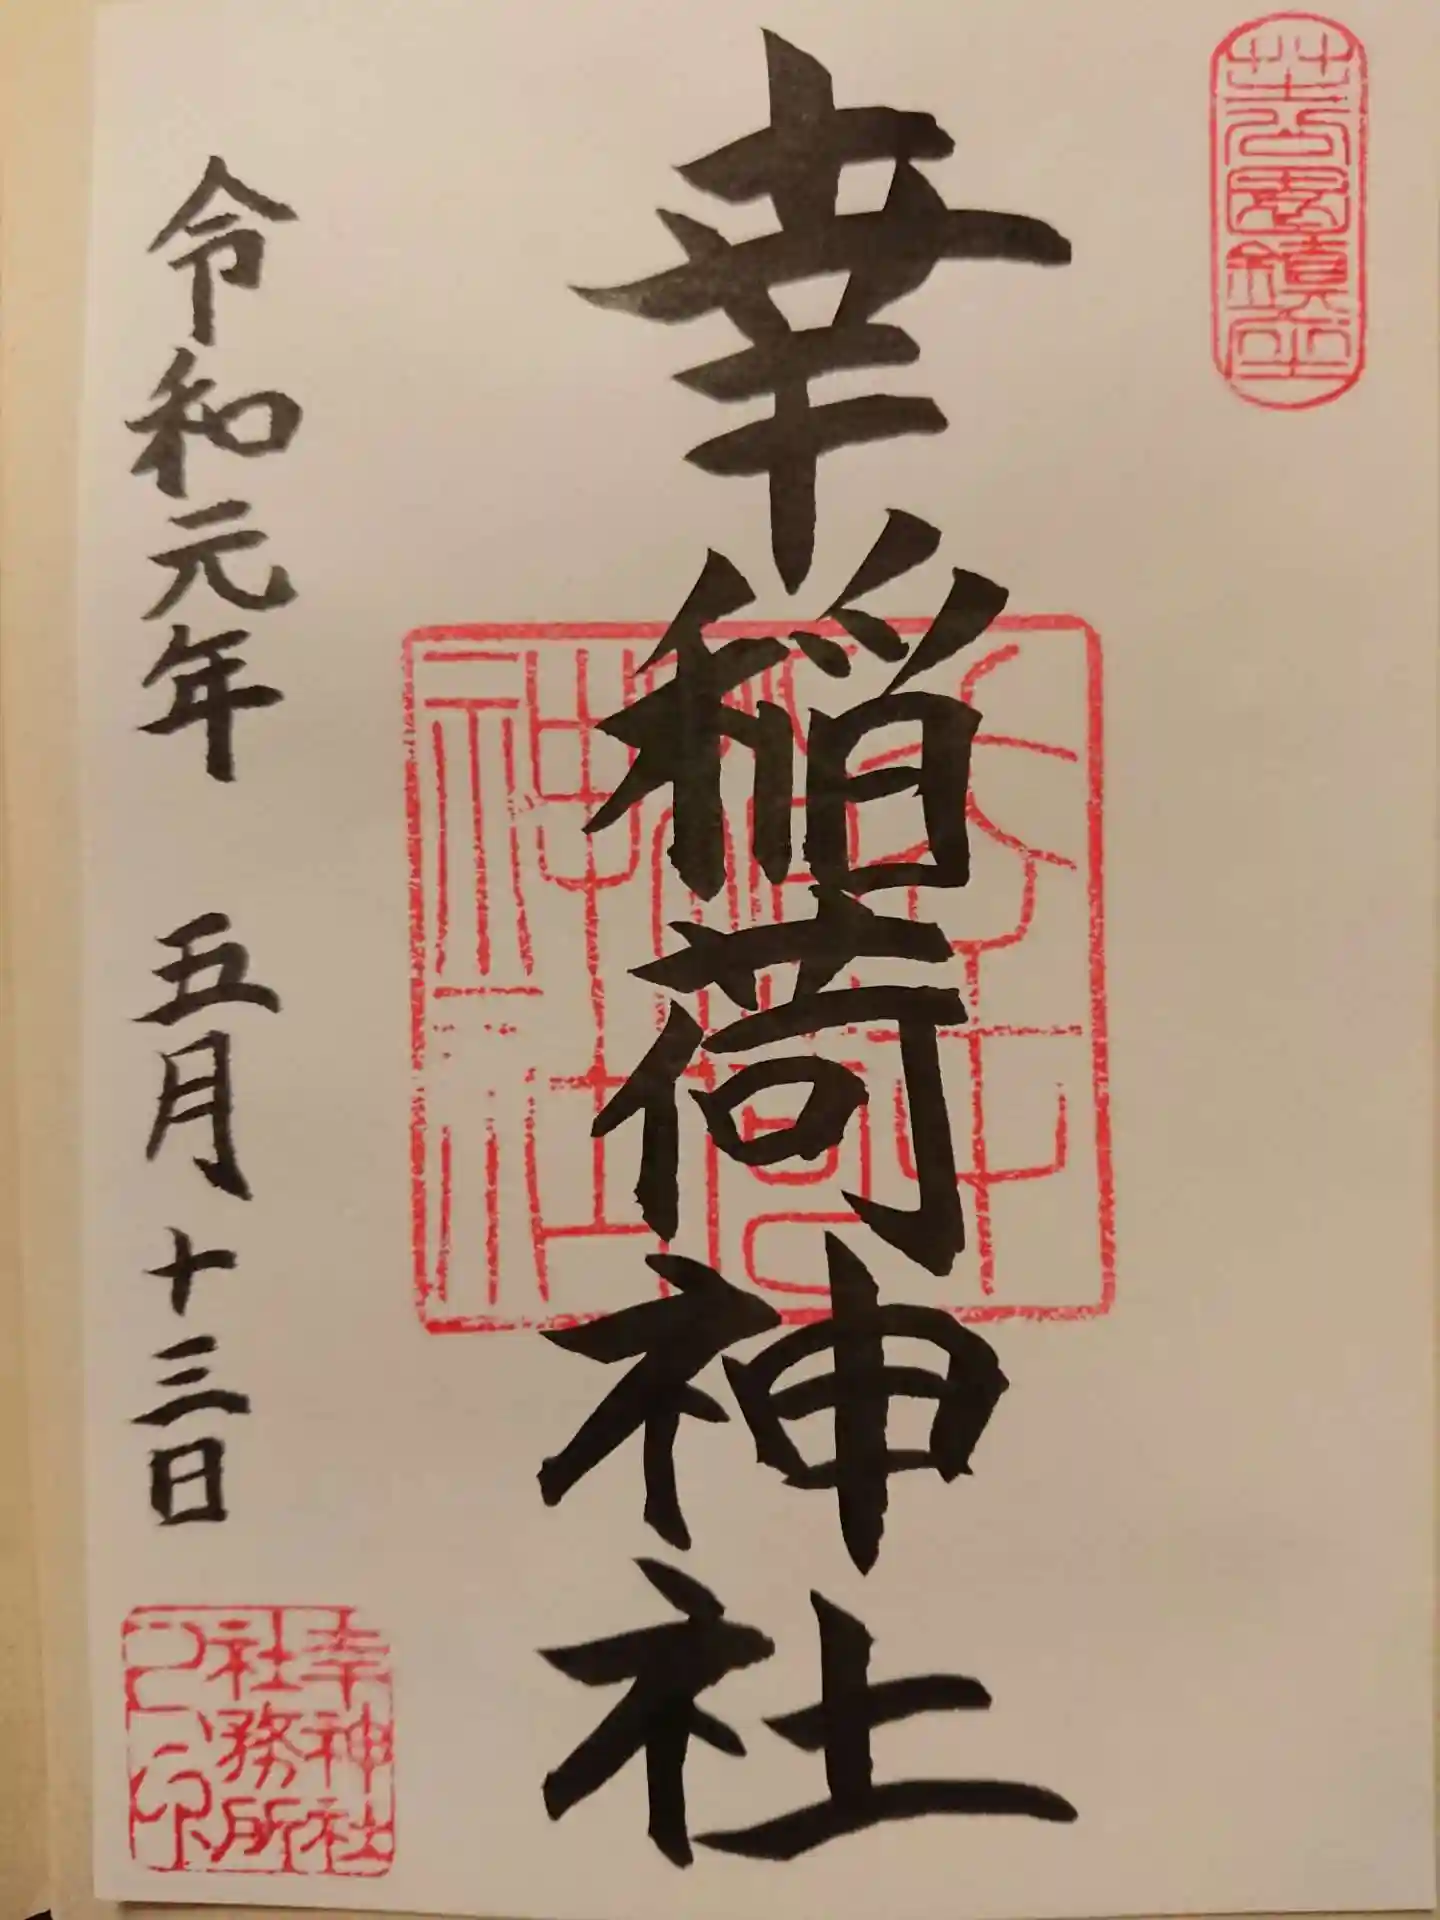 芝公園鎮座
幸稲荷神社
幸稲荷神社
令和元年 五月十三日
幸神社
社務所
之印